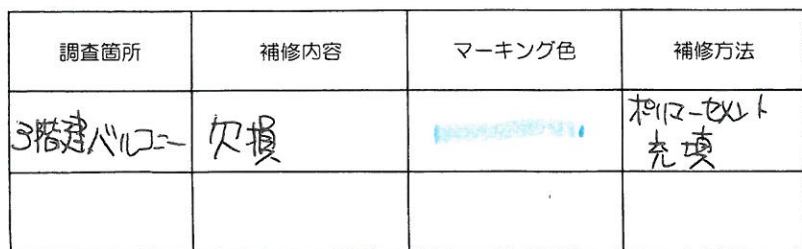 調査箇所 補修内容 マーキング色 補修方法
3階建バルコニー 欠損 ポリマーセメント
充填